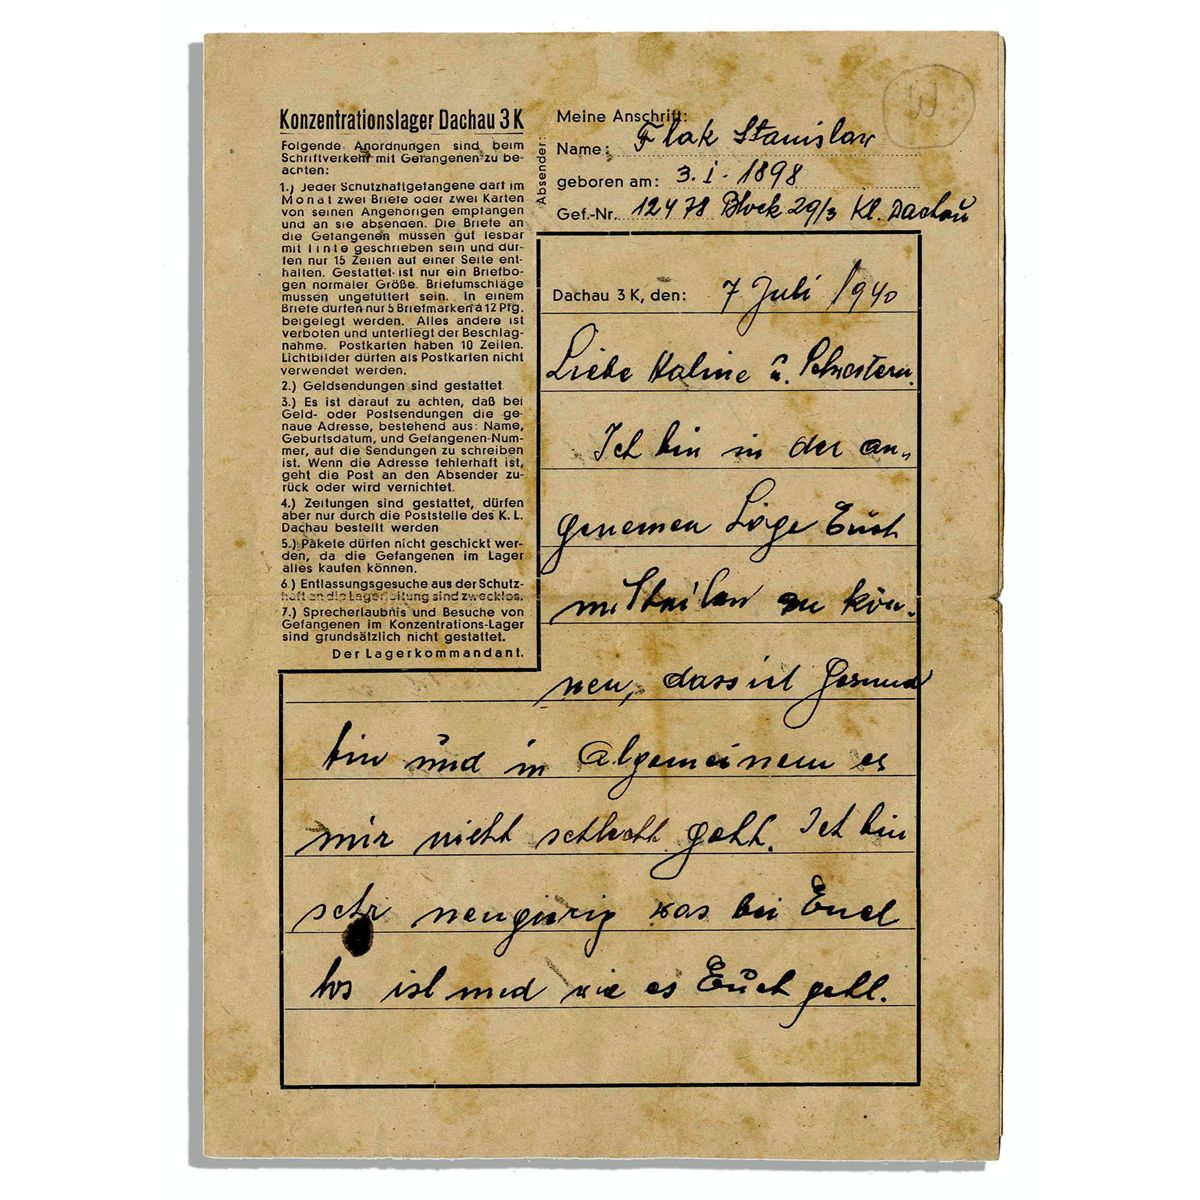 Konzentrationslager Dachau 3 K
Folgende Anordnungen sind beim
Schriftverkehr mit Gefangenen zu be-
achten:
1.) Jeder Schutzhaftgefangene darf im
Monat zwei Briefe oder zwei Karten
von seinen Angehörigen empfangen
und an sie absenden. Die Briefe an
die Gefangenen müssen gut lesbar
mit Tinte geschrieben sein und dür-
fen nur 15 Zeilen auf einer Seite ent-
halten. Gestattet ist nur ein Briefbo-
gen normaler Größe. Briefumschläge
müssen ungefüttert sein. In einem
Briefe dürfen nur 5 Briefmarken à 12 Pfg.
beigelegt werden. Alles andere ist
verboten und unterliegt der Beschlag-
nahme. Postkarten haben 10 Zeilen.
Lichtbilder dürfen als Postkarten nicht
verwendet werden.
2.) Geldsendungen sind gestattet
3.) Es ist darauf zu achten, daß bei
Geld- oder Postsendungen die ge-
naue Adresse, bestehend aus: Name,
Geburtsdatum, und Gefangenen-Num-
mer, auf die Sendungen zu schreiben
ist. Wenn die Adresse fehlerhaft ist,
geht die Post an den Absender zu-
rück oder wird vernichtet.
4.) Zeitungen sind gestattet, dürfen
aber nur durch die Poststelle des K. L.
Dachau bestellt werden
5.) Pakete dürfen nicht geschickt wer-
den, da die Gefangenen im Lager
alles kaufen können.
6.) Entlassungsgesuche aus der Schutz-
haft an die Lagerleitung sind zwecklos.
7.) Sprecherlaubnis und Besuche von
Gefangenen im Konzentrations-Lager
sind grundsätzlich nicht gestattet.
Der Lagerkommandant.
Absender:
Meine Anschrift:
Name: Flak Stanislaw
geboren am: 3. I. 1898
Gef.-Nr. 12478 Block 29/3 Kl. Dachau
Dachau 3 K, den: 7 Juli 1940
Liebe Haline u. Schwestern.
Ich bin in der an-
genemen Lage Euch
mitteilen zu kön-
nen, dass ich Gesund
bin und in Algemeinem es
mir nicht schlecht geht. Ich bin
sehr neugierig was bei Euch
los ist und wie es Euch geht.